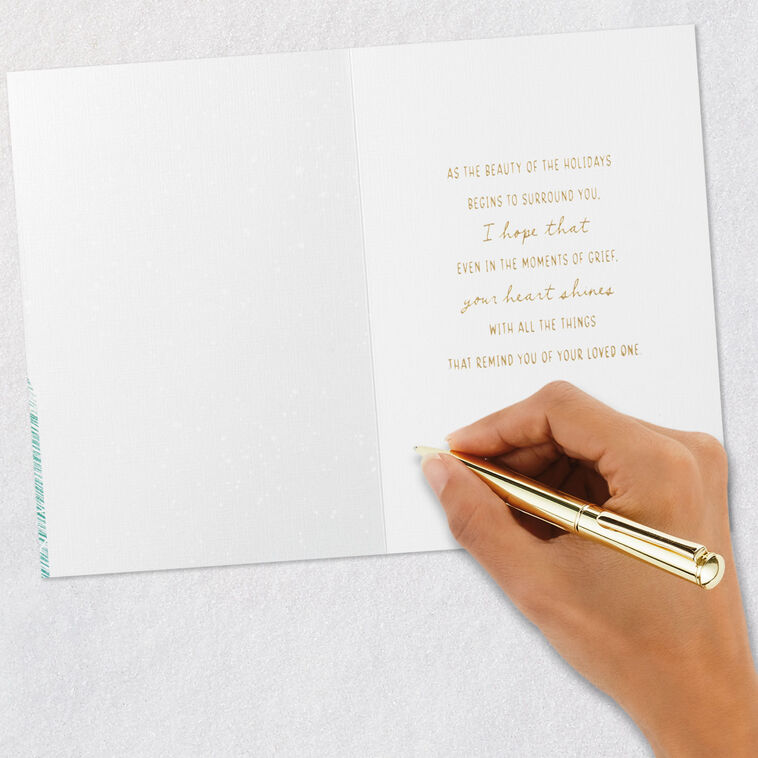 AS THE BEAUTY OF THE HOLIDAYS
BEGINS TO SURROUND YOU,
I hope that
EVEN IN THE MOMENTS OF GRIEF,
your heart shines
WITH ALL THE THINGS
THAT REMIND YOU OF YOUR LOVED ONE.